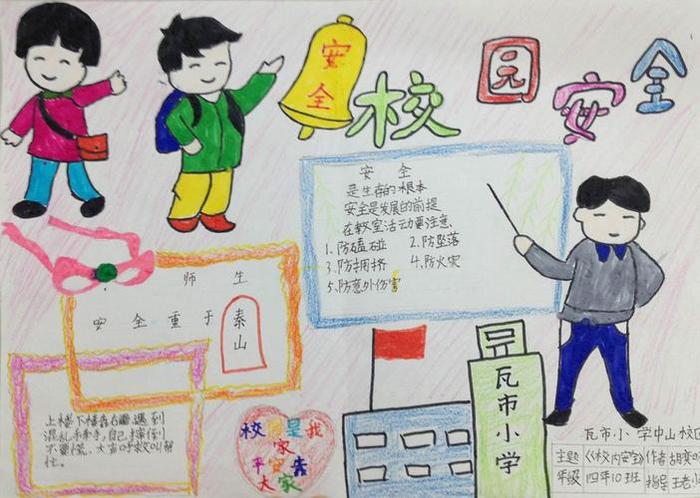 安
全
校园安全
安 全
是生存的根本
安全是发展的前提
在教室活动要注意
1.防磕碰 2.防坠落
3.防拥挤 4.防火灾
5.防意外伤害
师 生
安 全 重 于 泰
山
上楼下楼靠右
遇到
混乱手牵手,自己摔倒
不要慌,大声呼救叫
住。
校园是我
家
平安靠
大家
瓦市小学
瓦市小学中山校区
主题 《校内安全》作者 胡
年级 四年10班 指导 王老